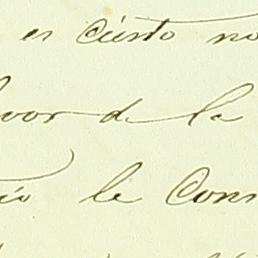 es cierto no
vor de la
io le Con